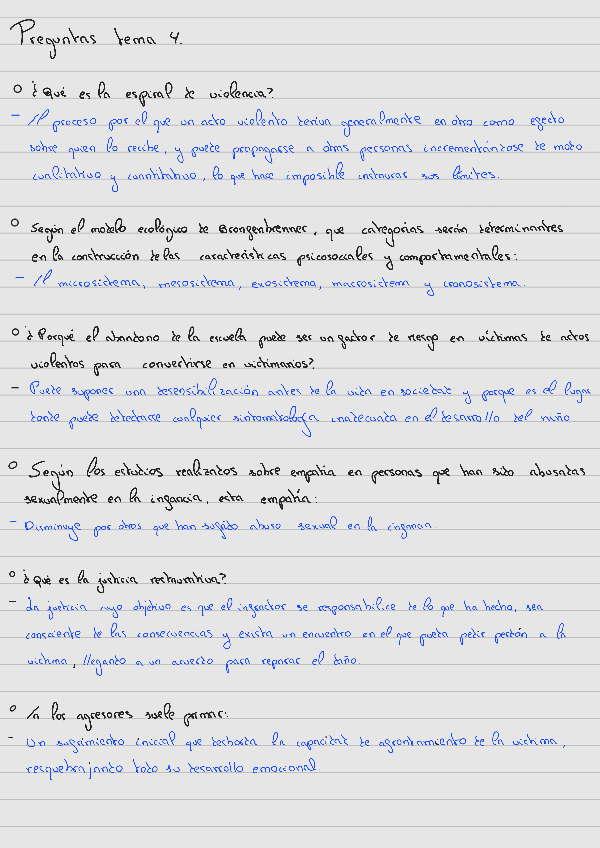 Preguntas tema 4.
○ ¿Qué es la espiral de violencia?
- El proceso por el que un acto violento deriva generalmente en otro como efecto
sobre quien lo recibe, y puede propagarse a otras personas incrementándose de modo
cualitativo y cuantitativo, lo que hace imposible instaurar sus límites.
○ Según el modelo ecológico de Brongenbrenner, que categorías serán determinantes
en la construcción de las características psicosociales y comportamentales:
- El microsistema, mesosistema, exosistema, macrosistema y cronosistema.
○ ¿Porqué el abandono de la escuela puede ser un factor de riesgo en víctimas de actos
violentos para convertirse en victimarios?
- Puede suponer una desensibilización antes de la vida en sociedad y porque es el lugar
donde puede detectarse cualquier sintomatología inadecuada en el desarrollo del niño.
○ Según los estudios realizados sobre empatía en personas que han sido abusadas
sexualmente en la infancia, esta empatía:
- Disminuye por otros que han sufrido abuso sexual en la infancia.
○ ¿Qué es la justicia restaurativa?
- La justicia cuyo objetivo es que el infractor se responsabilice de lo que ha hecho, sea
consciente de las consecuencias y exista un encuentro en el que pueda pedir perdón a la
víctima, llegando a un acuerdo para reparar el daño.
○ En los agresores suele primar:
- Un sufrimiento inicial que desborda la capacidad de afrontamiento de la víctima,
resquebrajando todo su desarrollo emocional.